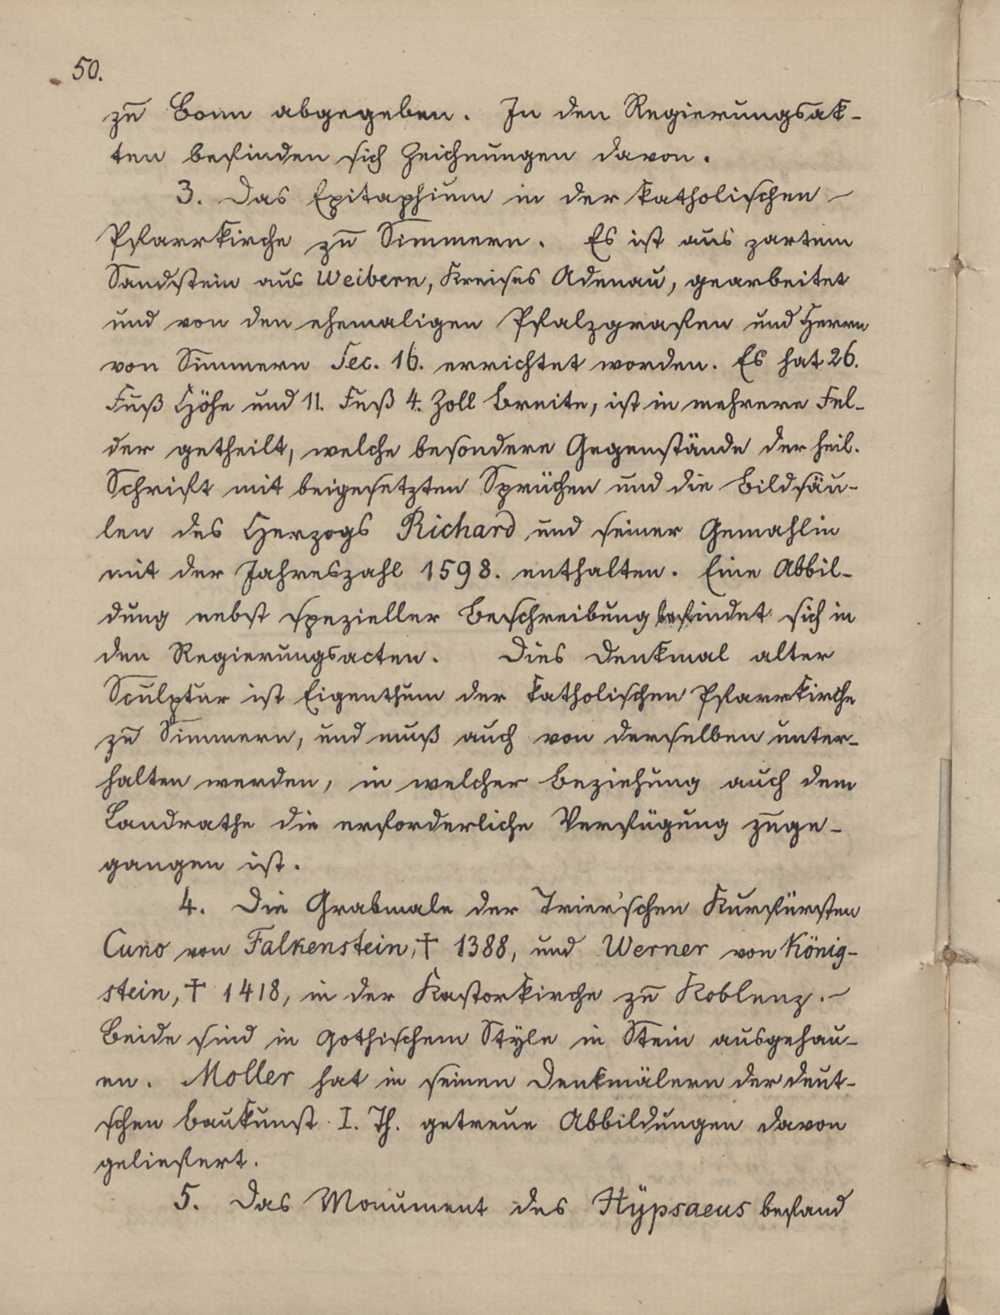 50.
zu Bonn abgegeben. In den Regierungsak-
ten befinden sich Zeichnungen davon.
3. Das Epitaphium in der katholischen
Pfarrkirche zu Simmern. Es ist aus zartem
Sandstein aus Weibern, Kreises Adenau, gearbeitet
und von den ehemaligen Pfalzgrafen und Herrn
von Simmern Sec. 16. errichtet worden. Es hat 26.
Fuß Höhe und 11. Fuß 4. Zoll Breite, ist in mehrere Fel-
der getheilt, welche besondere Gegenstände der heil.
Schrift mit beigesetzten Sprüchen und die Bildsäu-
len des Herzogs Richard und seiner Gemahlin
mit der Jahreszahl 1598. enthalten. Eine Abbil-
dung nebst spezieller Beschreibung befindet sich in
den Regierungsacten. Dies Denkmal alter
Sculptur ist Eigenthum der katholischen Pfarrkirche
zu Simmern, und muß auch von derselben unter-
halten werden, in welcher Beziehung auch dem
Landrathe die erforderliche Verfügung zuge-
gangen ist.
4. Die Grabmale der Trier'schen Kurfürsten
Cuno von Falkenstein, † 1388, und Werner von König-
stein, † 1418, in der Kastorkirche zu Koblenz.
Beide sind in gothischem Style in Stein ausgehau-
en. Moller hat in seinen Denkmälern der deut-
schen Baukunst I. Th. getreue Abbildungen davon
geliefert.
5. Das Monument des Hÿpsaeus befand